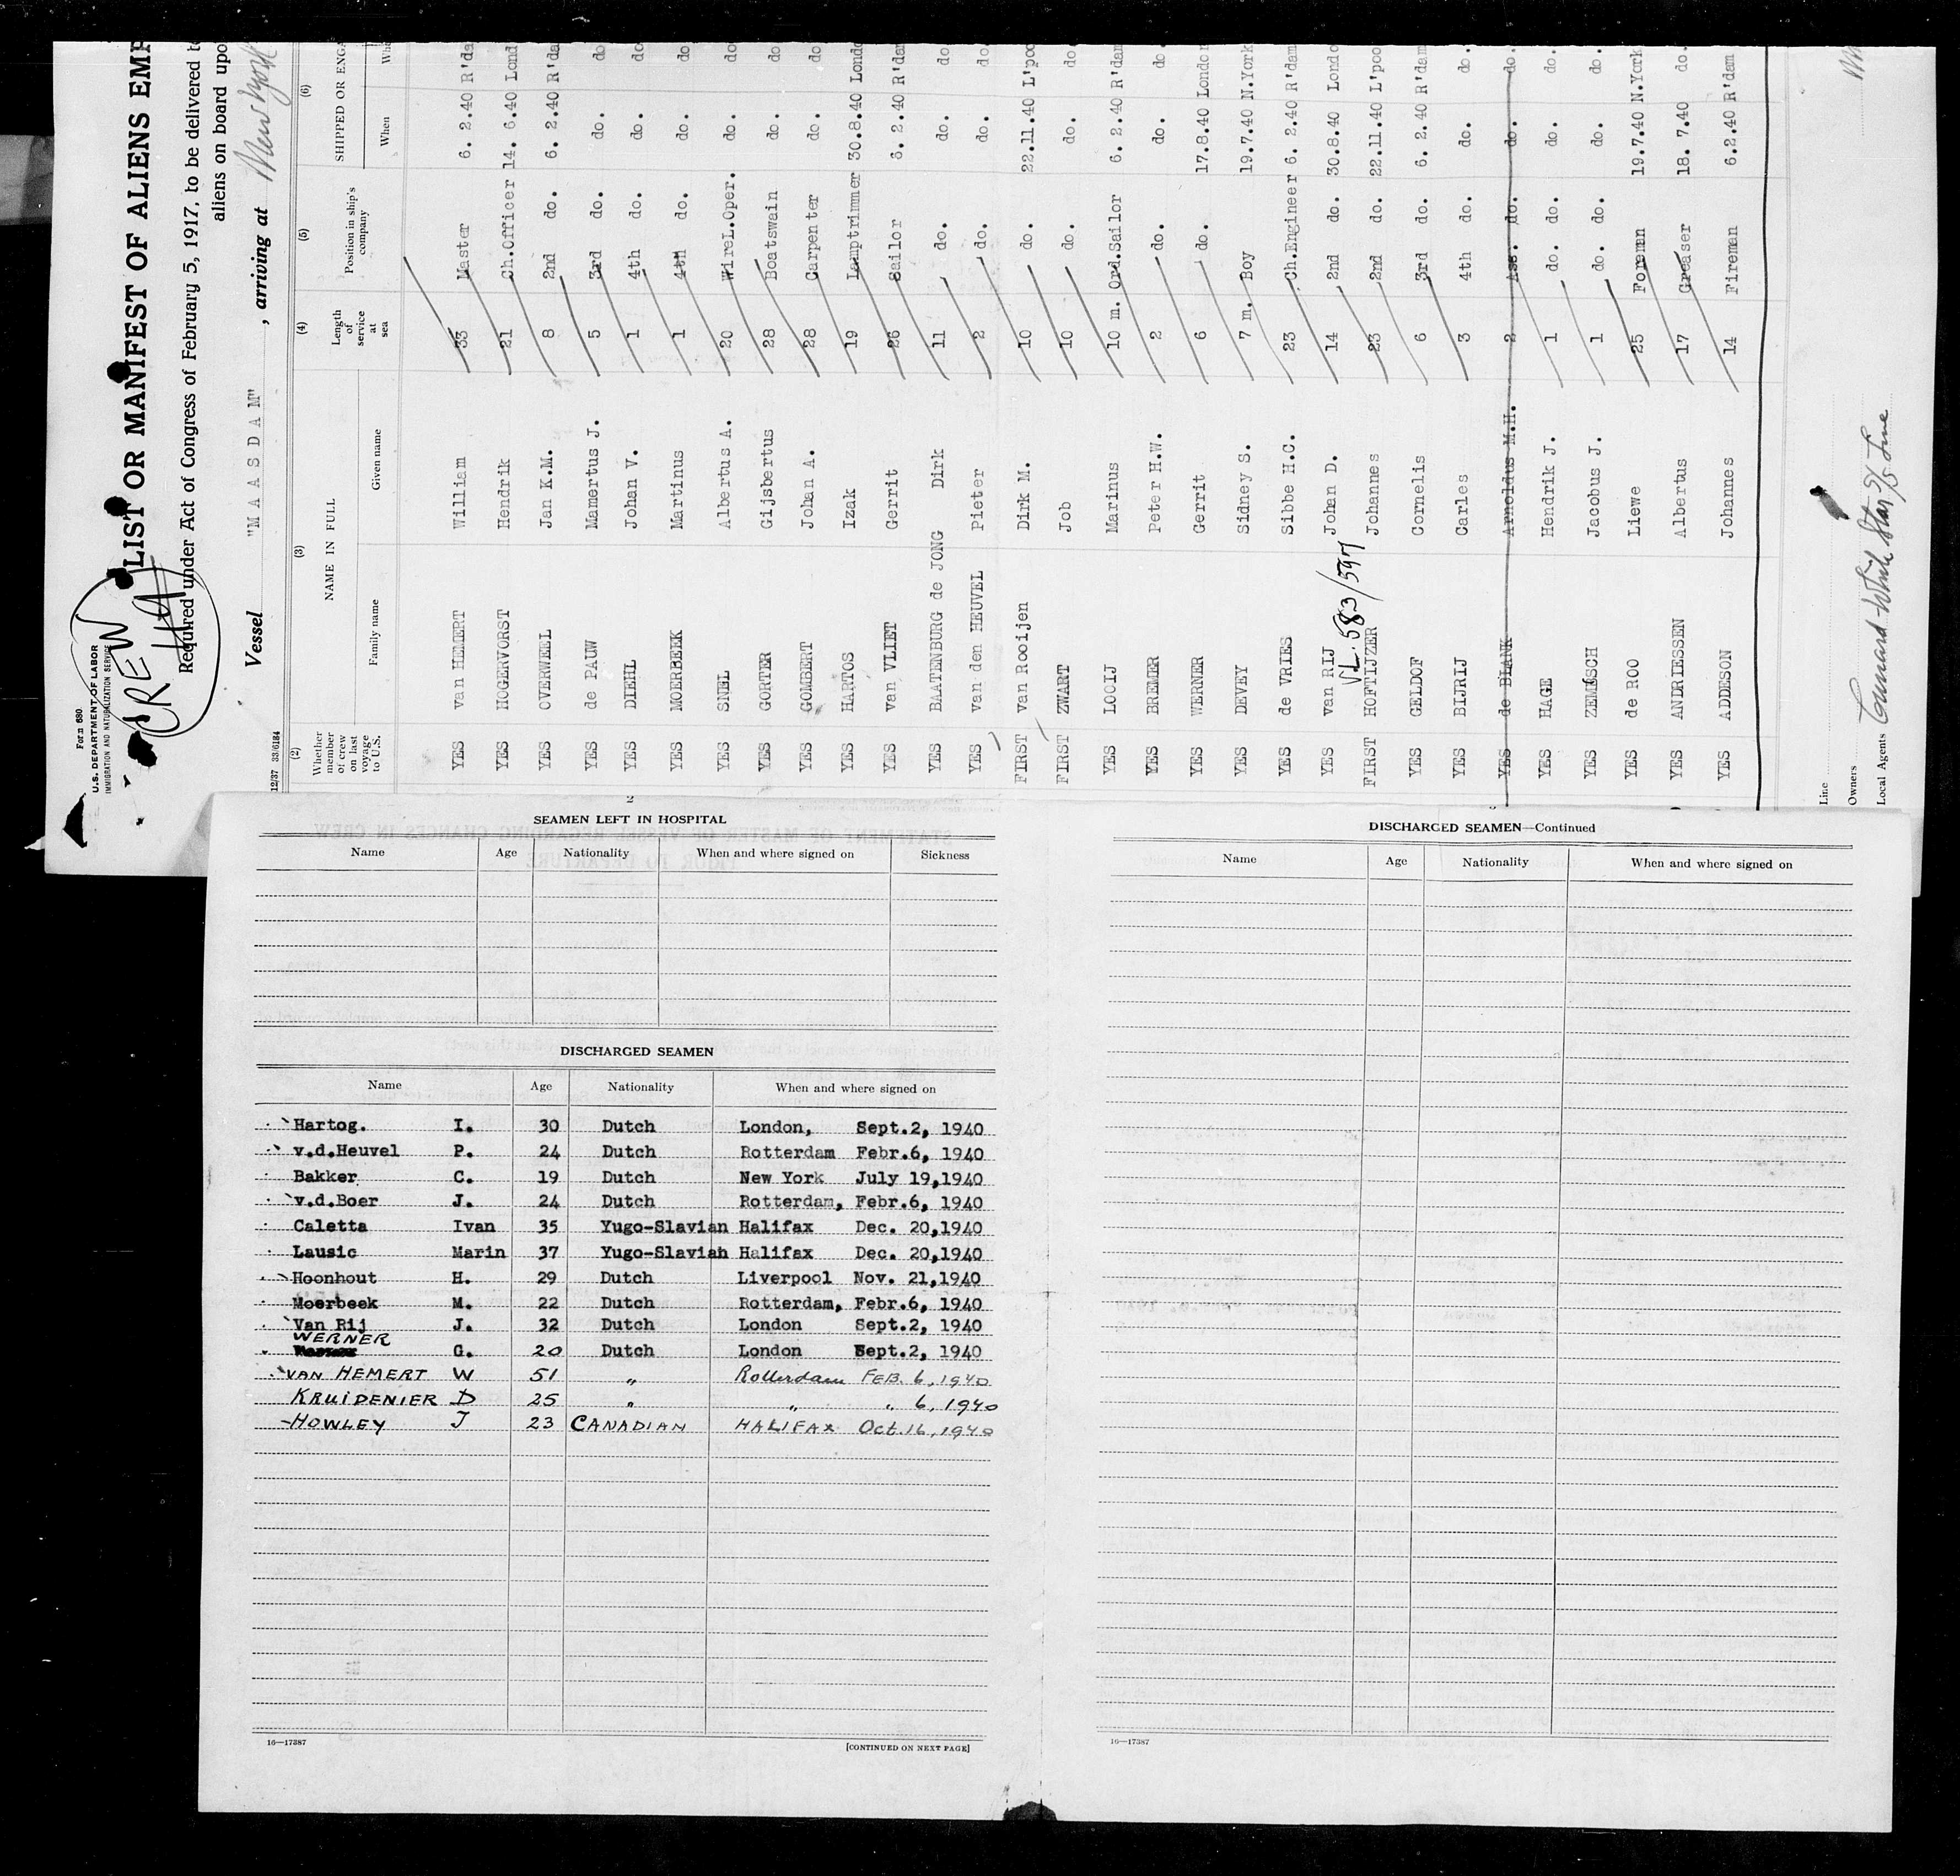 Form 680
U.S. DEPARTMENT OF LABOR
IMMIGRATION AND NATURALIZATION SERVICE
CREW
LIST OR MANIFEST OF ALIENS EMP
Required under Act of Congress of February 5, 1917, to be delivered t
aliens on board upo
Vessel "MAASDAM", arriving at New York
12/37 33/6184
(2) (3) (4) (5) (6)
Whether member of crew on last voyage to U.S. NAME IN FULL Length of service at sea Position in ship's company SHIPPED OR ENGA
Family name Given name When Whe
YES van HEMERT William 33 Master 6. 2.40 R'da
YES HOGERVORST Hendrik 21 Ch.Officer 14. 6.40 Lond
YES OVERWEEL Jan K.M. 8 2nd do. 6. 2.40 R'da
YES de PAUW Mamertus J. 5 3rd do. do. do
YES DIEHL Johan V. 1 4th do. do. do
YES MOERBEEK Martinus 1 4th do. do. do
YES SNEL Albertus A. 20 WireL.Oper. do. do
YES GORTER Gijsbertus 28 Boatswain do. do
YES GOMBERT Johan A. 28 Carpenter do. do
YES HARTOS Izak 19 Lamptrimmer 30.8.40 Londo
YES van VLIET Gerrit 26 Sailor 6. 2.40 R'dam
YES BAATENBURG de JONG Dirk 11 do. do. do.
YES van den HEUVEL Pieter 2 do. do. do.
FIRST van Rooijen Dirk M. 10 do. 22.11.40 L'poo
FIRST ZWART Job 10 do. do. do
YES LOOIJ Marinus 10 m. Ord.Sailor 6. 2.40 R'dam
YES BREMER Peter H.W. 2 do. do. do.
YES WERNER Gerrit 6 do. 17.8.40 London
YES DEVEY Sidney S. 7 m. Boy 19.7.40 N.York
YES de VRIES Sibbe H.C. 23 Ch.Engineer 6. 2.40 R'dam
YES van RIJ Johan D. 14 2nd do. 30.8.40 Londo
VL. 583/597
FIRST HOFTIJZER Johannes 23 2nd do. 22.11.40 L'poo
YES GELDOF Cornelis 6 3rd do. 6. 2.40 R'dam
YES BIJRIJ Carles 3 4th do. do. do.
YES de BLANK Arnoldus M.H. 2 Ass. do. do. do.
YES HAGE Hendrik J. 1 do. do. do. do.
YES ZEMESCH Jacobus J. 1 do. do. do. do.
YES de ROO Liewe 25 Foreman 19.7.40 N.York
YES ANDRIESSEN Albertus 17 Greaser 18. 7.40 do.
YES ADDESON Johannes 14 Fireman 6.2.40 R'dam
Line
Owners
Local Agents Cunard White Star S/S Line
2
SEAMEN LEFT IN HOSPITAL
Name Age Nationality When and where signed on Sickness
DISCHARGED SEAMEN
Name Age Nationality When and where signed on
Hartog. I. 30 Dutch London, Sept.2, 1940
v.d.Heuvel P. 24 Dutch Rotterdam Febr.6, 1940
Bakker C. 19 Dutch New York July 19,1940
v.d.Boer J. 24 Dutch Rotterdam, Febr.6, 1940
Caletta Ivan 35 Yugo-Slavian Halifax Dec. 20,1940
Lausic Marin 37 Yugo-Slavian Halifax Dec. 20,1940
Hoonhout H. 29 Dutch Liverpool Nov. 21,1940
Moerbeek M. 22 Dutch Rotterdam, Febr.6, 1940
Van Rij J. 32 Dutch London Sept.2, 1940
WERNER G. 20 Dutch London Sept.2, 1940
VAN HEMERT W 51 " Rotterdam FEB. 6, 1940
KRUIDENIER D 25 " " " 6, 1940
HOWLEY J 23 CANADIAN HALIFAX Oct.16,1940
16—17387
[CONTINUED ON NEXT PAGE]
DISCHARGED SEAMEN—Continued
Name Age Nationality When and where signed on
16—17387